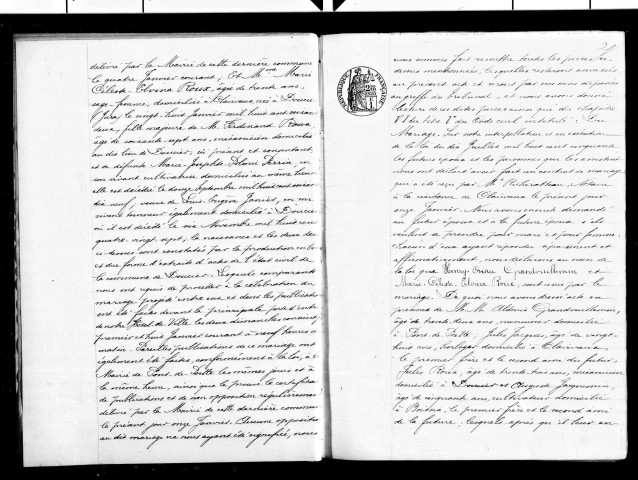 délivré par le Mairie de cette dernière commune
le quatre Janvier courant; Et Mme Marie
Céleste Elvina Roux, âgée de trente ans,
sage-femme, domiciliée à Clairvaux, née à Doucier
Jura, le vingt huit Janvier mil huit cent soixante
deux, fille majeure de M. Ferdinand Roux,
âgé de soixante sept ans, mécanicien domicilié
au dit lieu de Doucier, ici présent et consentant,
et de défunte Marie Josephte
vivant cultivatrice domiciliée au même lieu
elle est décédée le douze Septembre mil huit cent soixante
dix neuf, veuve de Louis Eugène Janier, en son
vivant tourneur également domicilié à Doucier
où il est décédé le six Novembre mil huit cent
quatre vingt sept, la naissance et les deux dé-
cès sont constatés par la production en
due forme d'extraits d'acte de l'état civil de
la commune de Doucier. Lesquels comparants
nous ont requis de procéder à la célébration du
mariage projeté entre eux et dont les publications
ont été faites devant la principale porte d'entrée
de notre Hôtel de Ville les deux dimanches
premier et huit Janvier courant à neuf heures du
matin. Pareilles publications de ce mariage ont
également été faites, conformément à la loi, à la
Mairie de Pont de Poitte les mêmes jours et à
la même heure, ainsi que le prouve le certificat
de publications et de non opposition régulièrement
délivré par la Mairie de cette dernière commune
le présent jour onze Janvier. Aucune opposition
au dit mariage ne nous ayant été signifiée, nous
nous sommes fait remettre toutes les pièces
dessus mentionnées, lesquelles resteront annexées
au présent acte et seront par nous déposées
au greffe du tribunal et nous avons donné
lecture des dites pièces ainsi que du chapitre
VI du titre V du Code civil intitulé: Du
Mariage. Sur notre interpellation et en exécution
de la loi du dix Juillet mil huit cent cinquante
les futurs époux et les personnes qui les assistent
nous ont déclaré avoir fait un contrat de mariage
qui a été reçu par Me
à la résidence de Clairvaux le présent jour
onze Janvier. Nous avons ensuite demandé
au futur époux et à la future épouse s'ils
veulent se prendre pour mari et pour femme
chacun d'eux ayant répondu séparément et
affirmativement, nous déclarons au nom de
la loi que Grandvuillemin et
Marie Céleste Elvina Roux, sont unis par le
mariage. De quoi nous avons dressé acte en
présence de MM. Grandvuillemin,
âgé de trente deux ans, menuisier domicilié
à Pont de Poitte, Jules Jacques, âgé de vingt
huit ans, horloger domicilié à Clairvaux,
le premier frère et le second ami du futur,
Jules Roux, âgé de trente trois ans, mécanicien
domicilié à Doucier et Auguste Jacquemin,
âgé de cinquante ans, cultivateur domicilié
à le premier frère et le second ami
de la future; lesquels après qu'il leur en